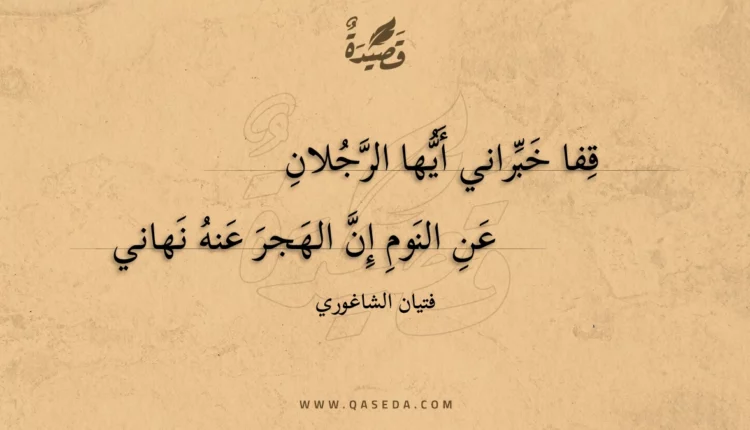 قَصِيدَةٌ
قِفا خَبِّراني أَيُّها الرَّجُلانِ
عَنِ النَومِ إِنَّ الهَجرَ عَنهُ نَهاني
فتيان الشاغوري
WWW.QASEDA.COM